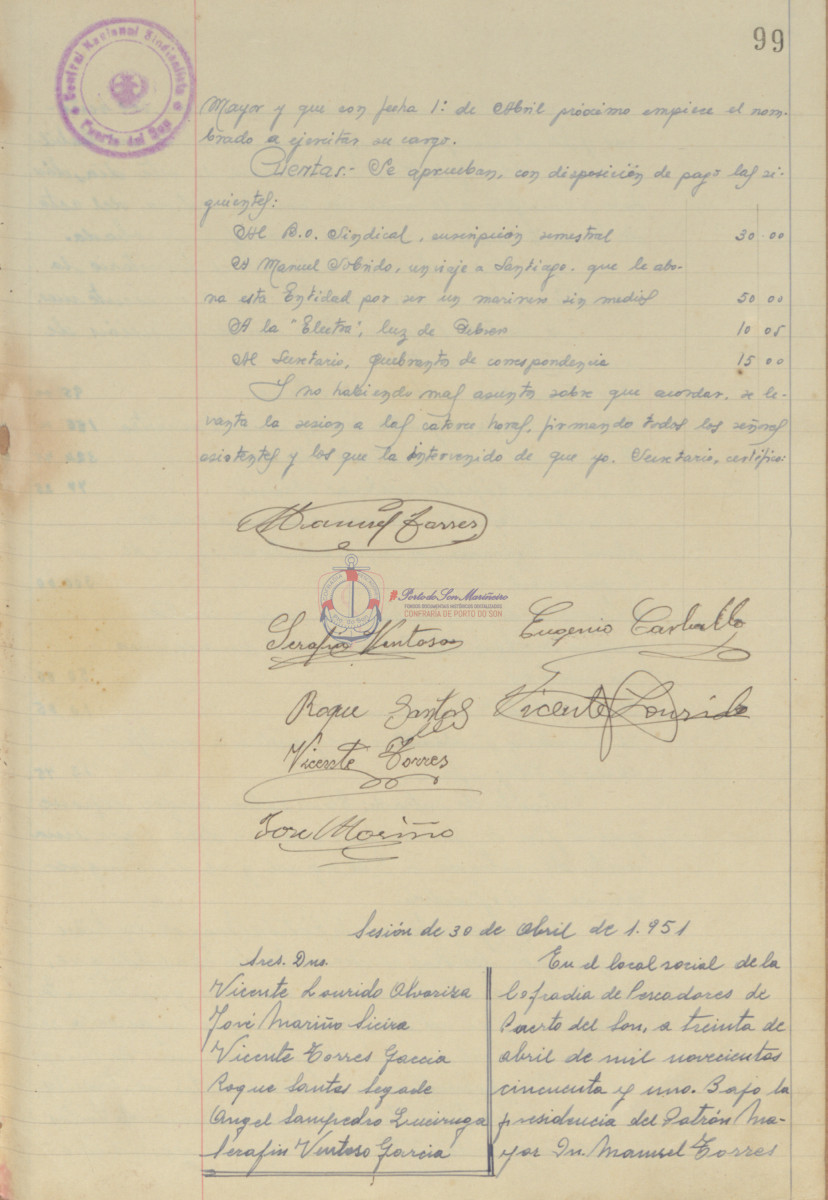 99
Central Nacional Sindicalista
Puerto del Son
Mayor y que con fecha 1º de Abril próximo empiece el nom-
brado a ejercitar su cargo.
Cuentas.- Se aprueban, con disposición de pago las si-
guientes:
Al B.O. Sindical, suscripción semestral 30 00
A Manuel Sobrido, un viaje a Santiago, que le abo-
na esta Entidad por ser un marinero sin medios 50 00
A la "Electra", luz de Febrero 10 05
Al Secretario, quebrantos de correspondencia 15 00
Y no habiendo mas asuntos sobre que acordar, se le-
vanta la sesion a las catorce horas, firmando todos los señores
asistentes y los que la intervenido de que yo, Secretario, certifico:
Manuel Torres
CONFRARIA DE PORTO DO SON
#PortodoSonMariñeiro
FONDOS DOCUMENTAIS HISTÓRICOS DIXITALIZADOS
CONFRARÍA DE PORTO DO SON
Serafin Ventoso
Eugenio Carballo
Roque Santos
Vicente Lourido
Vicente Torres
Jose Mariño
Sesión de 30 de Abril de 1.951
Sres. Dns.
Vicente Lourido Alvariza
José Mariño Sieira
Vicente Torres Garcia
Roque Santos Segade
Angel Sampedro Lueiruga
Serafin Ventoso Garcia
En el local social de la
Cofradia de Pescadores de
Puerto del Son, a treinta de
abril de mil novecientos
cincuenta y uno. Bajo la
presidencia del Patrón Ma-
yor Dn. Manuel Torres